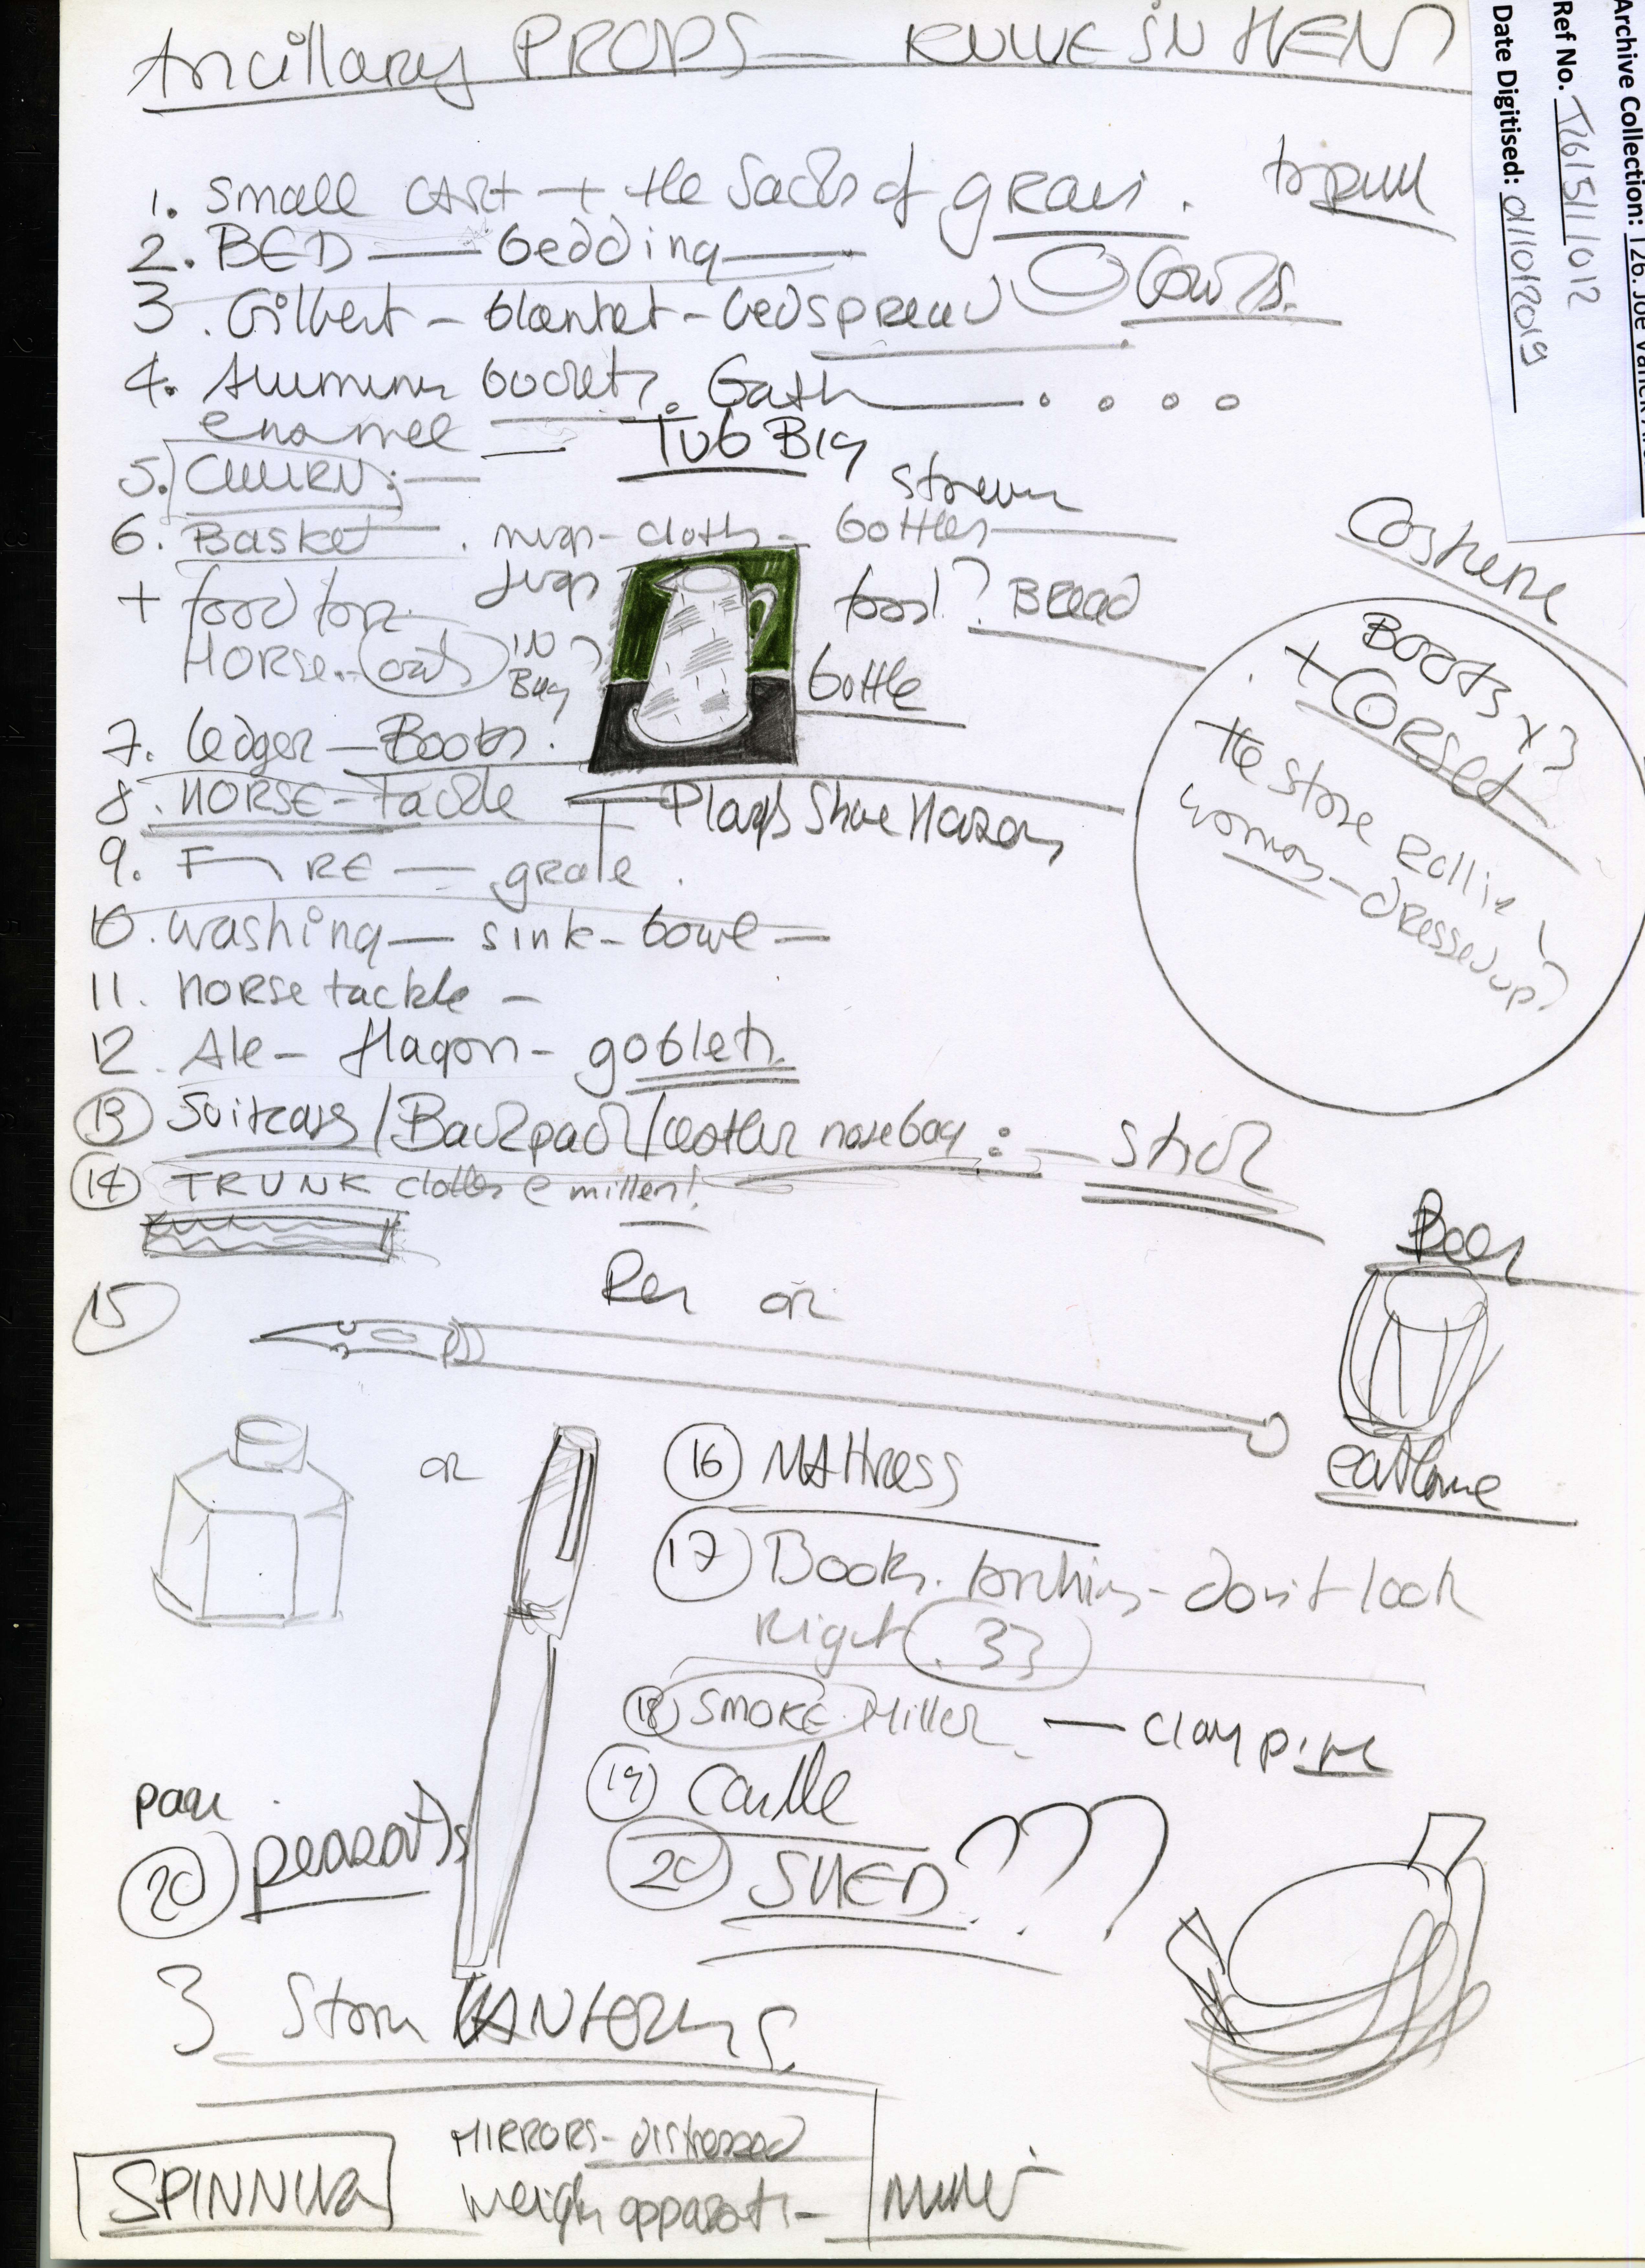 Ancillary PROPS — KNIVE IN HEN
Archive Collection: T26: Joe Vaněk
Ref No. T26/511/012
Date Digitised: 01/10/2019
1. Small CART + the Sacks of GRAIN.
2. BED — bedding —
3. Gilbert - blanket - bedspread
bowls.
4. Aluminum buckets. Bath
enamel — TUB BIG
5. CHURN: —
6. Basket . mugs - cloths - bottles —
jugs
+ food for
HORSE. oats
IN
Bag
food? BREAD
bottle
7. ledger — Books.
8. HORSE - Tackle — Plough Shoe
9. FIRE — grate.
10. washing — sink - bowl —
11. HORSE tackle —
12. Ale — flagon - goblets.
13 Suitcase / Backpack / leather nosebag : — stick
14 TRUNK clothes @ millers!
Costume
BOOTS x 3
+ CORSET
the store
woman - DRESSED UP?
15
Pen or
or
Beer
16 MATTRESS
17 Books. - don't look
Right. 33
18 SMOKE. Miller. — Clay pipe
19 Candle
20 SHED ???
20 peasants
3 Storm LANTERNS.
SPINNING
MIRRORS - distressed
weigh apparati —